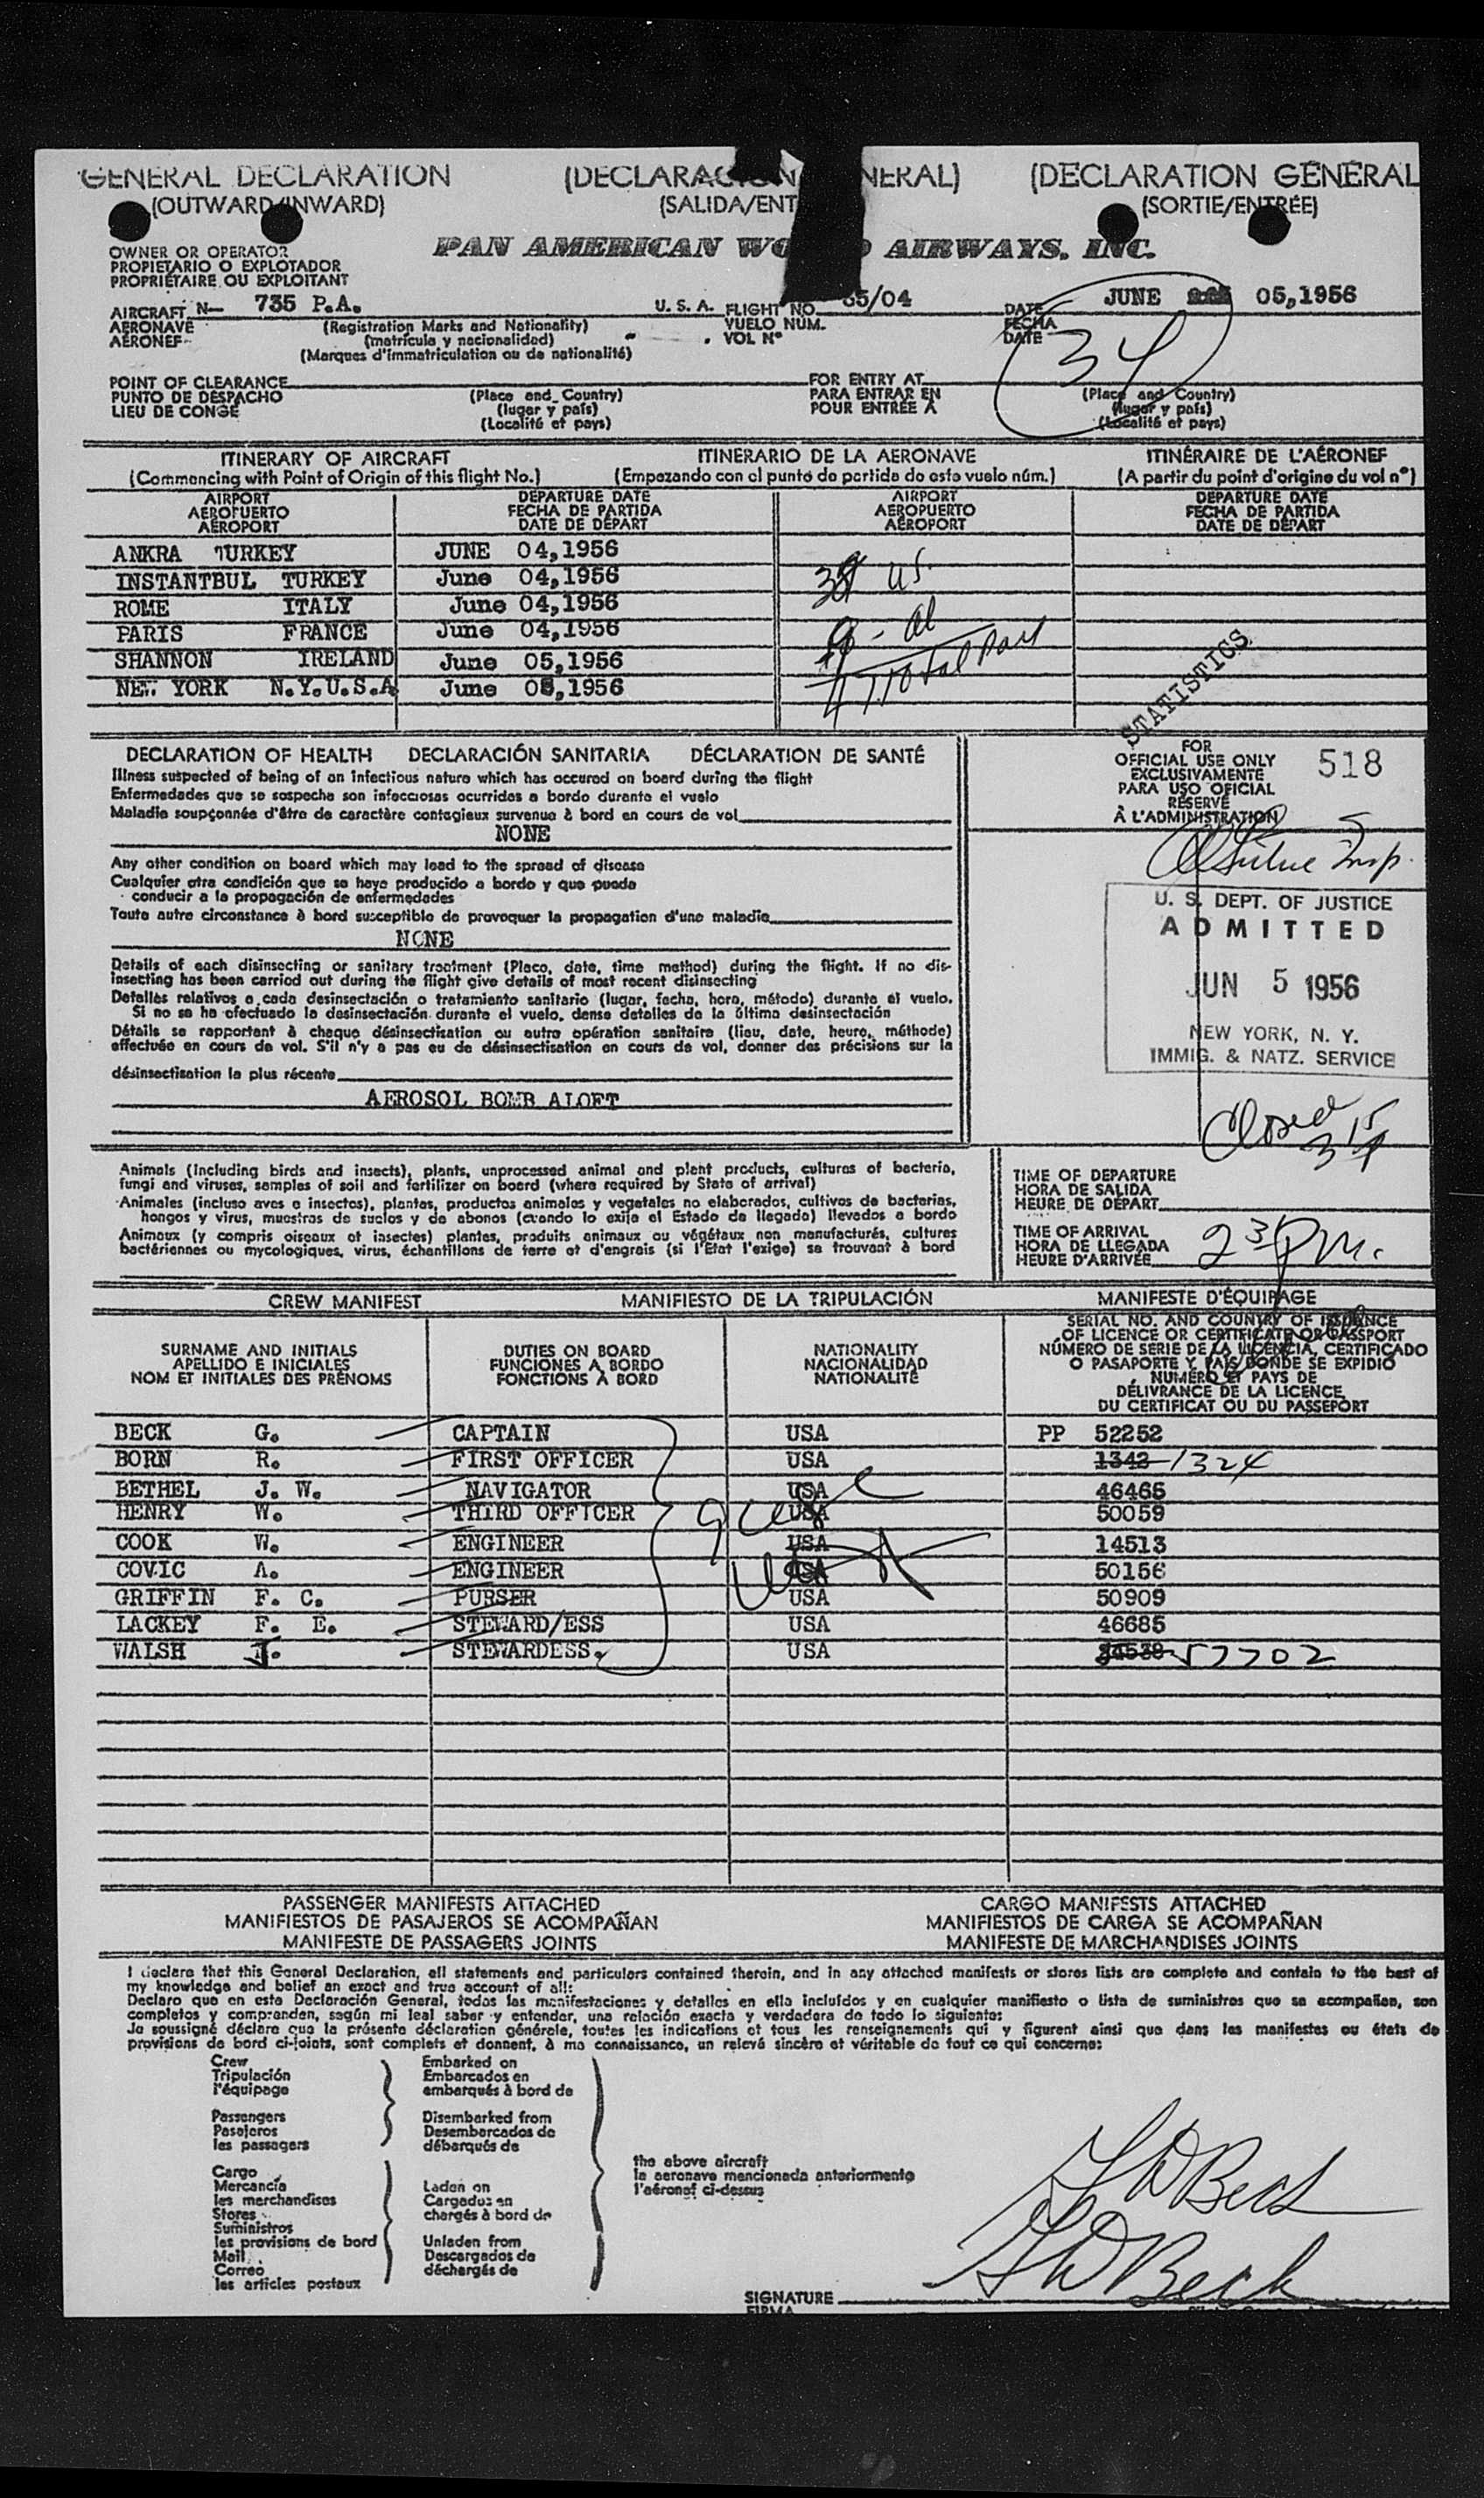 GENERAL DECLARATION (DECLARAC N NERAL) (DECLARATION GÉNÉRAL
(OUTWARD/INWARD) (SALIDA/ENT (SORTIE/ENTRÉE)
OWNER OR OPERATOR
PROPIETARIO O EXPLOTADOR
PROPRIÉTAIRE OU EXPLOITANT
PAN AMERICAN WO D AIRWAYS, INC.
AIRCRAFT N— 735 P.A. U. S. A. FLIGHT NO. 65/04 DATE JUNE 05,1956
AERONAVE (Registration Marks and Nationality) VUELO NÚM. FECHA
AÉRONEF (matrícula y nacionalidad) VOL Nº DATE
(Marques d'immatriculation ou de nationalité)
34
POINT OF CLEARANCE FOR ENTRY AT
PUNTO DE DESPACHO (Place and Country) PARA ENTRAR EN (Place and Country)
LIEU DE CONGÉ (lugar y país) POUR ENTRÉE À (lugar y país)
(Localité et pays) (Localité et pays)
ITINERARY OF AIRCRAFT ITINERARIO DE LA AERONAVE ITINÉRAIRE DE L'AÉRONEF
(Commencing with Point of Origin of this flight No.) (Empezando con el punto de partida de este vuelo núm.) (A partir du point d'origine du vol nº)
AIRPORT DEPARTURE DATE AIRPORT DEPARTURE DATE
AEROPUERTO FECHA DE PARTIDA AEROPUERTO FECHA DE PARTIDA
AÉROPORT DATE DE DÉPART AÉROPORT DATE DE DÉPART
ANKRA TURKEY JUNE 04,1956
INSTANTBUL TURKEY June 04,1956
38 US.
ROME ITALY June 04,1956
PARIS FRANCE June 04,1956
9 - al
SHANNON IRELAND June 05,1956
NEW YORK N.Y.U.S.A. June 05,1956
47 Total Pass
STATISTICS
DECLARATION OF HEALTH DECLARACIÓN SANITARIA DÉCLARATION DE SANTÉ
Illness suspected of being of an infectious nature which has occured on board during the flight
Enfermedades que se sospecha son infecciosas ocurridas a bordo durante el vuelo
Maladie soupçonnée d'être de caractère contagieux survenue à bord en cours de vol
NONE
Any other condition on board which may lead to the spread of disease
Cualquier otra condición que se haya producido a bordo y que pueda
conducir a la propagación de enfermedades
Toute autre circonstance à bord susceptible de provoquer la propagation d'une maladie
NONE
Details of each disinsecting or sanitary treatment (Place, date, time method) during the flight. If no dis-
insecting has been carried out during the flight give details of most recent disinsecting
Detalles relativos a cada desinsectación o tratamiento sanitario (lugar, fecha, hora, método) durante el vuelo.
Si no se ha efectuado la desinsectación durante el vuelo, dense detalles de la última desinsectación
Détails se rapportent à chaque désinsectisation ou autre opération sanitaire (lieu, date, heure, méthode)
effectuée en cours de vol. S'il n'y a pas eu de désinsectisation en cours de vol, donner des précisions sur la
désinsectisation la plus récente
AEROSOL BOMB ALOFT
FOR
OFFICIAL USE ONLY
EXCLUSIVAMENTE
PARA USO OFICIAL
RÉSERVÉ
À L'ADMINISTRATION
518
Insp.
U. S. DEPT. OF JUSTICE
ADMITTED
JUN 5 1956
NEW YORK, N. Y.
IMMIG. & NATZ. SERVICE
Closed
3 15
Animals (Including birds and insects), plants, unprocessed animal and plant products, cultures of bacteria,
fungi and viruses, samples of soil and fertilizer on board (where required by State of arrival)
Animales (incluso aves e insectos), plantas, productos animales y vegetales no elaborados, cultivos de bacterias,
hongos y virus, muestras de suelos y de abonos (cuando lo exija el Estado de llegada) llevados a bordo
Animaux (y compris oiseaux et insectes) plantes, produits animaux ou végétaux non manufacturés, cultures
bactériennes ou mycologiques, virus, échantillons de terre et d'engrais (si l'Etat l'exige) se trouvant à bord
TIME OF DEPARTURE
HORA DE SALIDA
HEURE DE DÉPART
TIME OF ARRIVAL
HORA DE LLEGADA
HEURE D'ARRIVÉE
CREW MANIFEST MANIFIESTO DE LA TRIPULACIÓN MANIFESTE D'ÉQUIPAGE
SURNAME AND INITIALS
APELLIDO E INICIALES
NOM ET INITIALES DES PRÉNOMS
DUTIES ON BOARD
FUNCIONES A BORDO
FONCTIONS À BORD
NATIONALITY
NACIONALIDAD
NATIONALITÉ
SERIAL NO. AND COUNTRY OF ISSUANCE
OF LICENCE OR CERTIFICATE OR PASSPORT
NÚMERO DE SERIE DE LA LICENCIA, CERTIFICADO
O PASAPORTE Y PAÍS DONDE SE EXPIDIÓ
NUMÉRO ET PAYS DE
DÉLIVRANCE DE LA LICENCE
DU CERTIFICAT OU DU PASSEPORT
BECK G. CAPTAIN USA PP 52252
BORN R. FIRST OFFICER USA 1342 1324
BETHEL J. W. NAVIGATOR USA 46465
HENRY W. THIRD OFFICER USA 50059
COOK W. ENGINEER USA 14513
COVIC A. ENGINEER USA 50156
GRIFFIN F. C. PURSER USA 50909
LACKEY F. E. STEWARD/ESS USA 46685
WALSH J. STEWARDESS. USA 57702
PASSENGER MANIFESTS ATTACHED CARGO MANIFESTS ATTACHED
MANIFIESTOS DE PASAJEROS SE ACOMPAÑAN MANIFIESTOS DE CARGA SE ACOMPAÑAN
MANIFESTE DE PASSAGERS JOINTS MANIFESTE DE MARCHANDISES JOINTS
I declare that this General Declaration, all statements and particulars contained therein, and in any attached manifests or stores lists are complete and contain to the best of
my knowledge and belief an exact and true account of all:
Declaro que en esta Declaración General, todas las manifestaciones y detalles en ella incluídos y en cualquier manifiesto o lista de suministros que se acompañan, son
completos y comprenden, según mi leal saber y entender, una relación exacta y verdadera de todo lo siguiente:
Je soussigné déclare que la présente déclaration générale, toutes les indications et tous les renseignements qui y figurent ainsi que dans les manifestes ou états de
provisions de bord ci-joints, sont complets et donnent, à ma connaissance, un relevé sincère et véritable de tout ce qui concerne:
Crew
Tripulación
l'équipage
Passengers
Pasajeros
les passagers
Cargo
Mercancía
les marchandises
Stores
Suministros
les provisions de bord
Mail
Correo
les articles postaux
Embarked on
Embarcados en
embarqués à bord de
Disembarked from
Desembarcados de
débarqués de
Laden on
Cargados en
chargés à bord de
Unladen from
Descargados de
déchargés de
the above aircraft
la aeronave mencionada anteriormente
l'aéronef ci-dessus
G W Beck
G W Beck
SIGNATURE
FIRMA